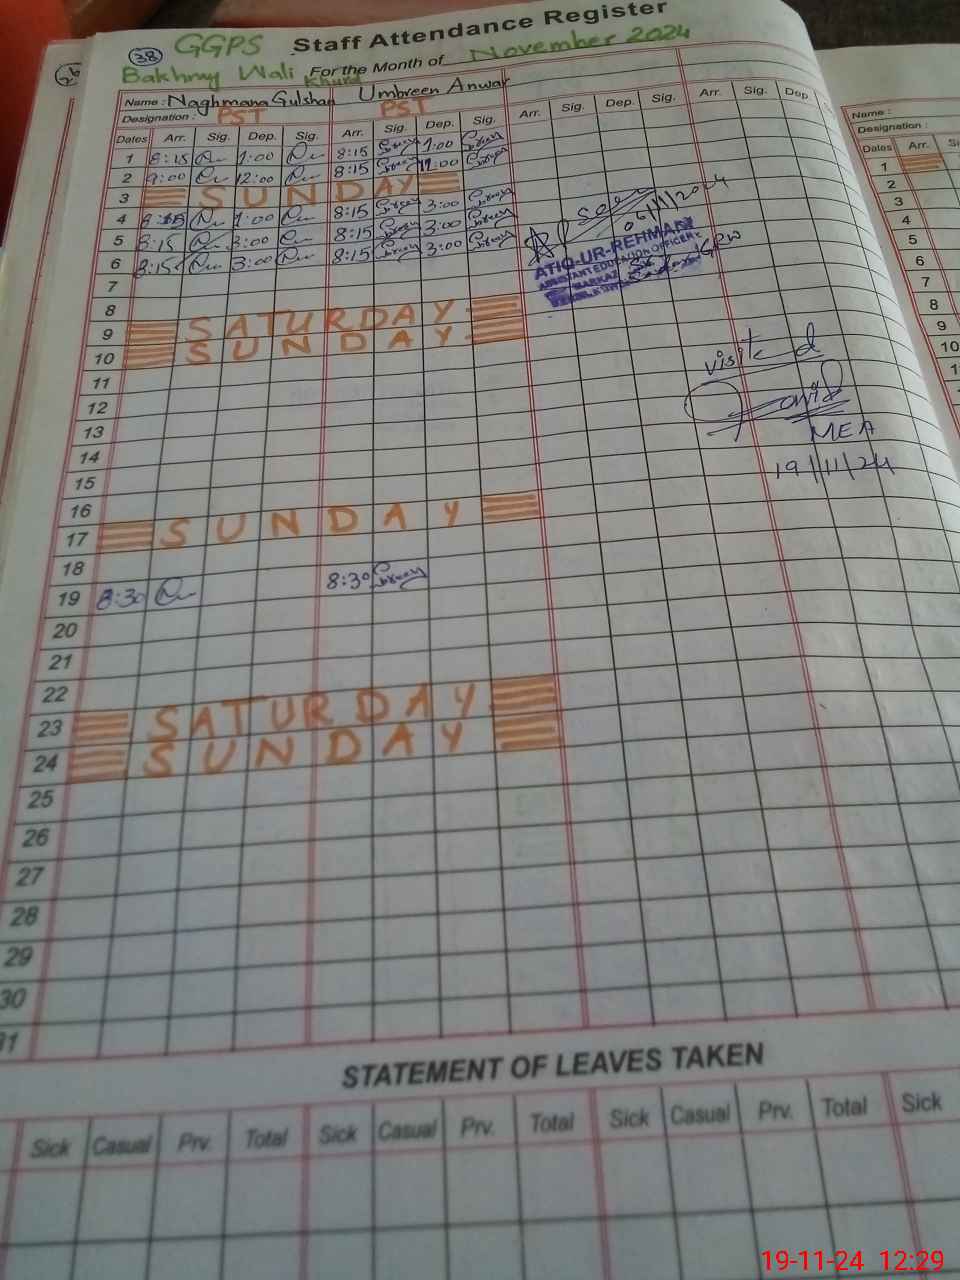 38 GGPS Staff Attendance Register
Bakhray Wali Khurd For the Month of November 2024
Name : Naghmana Gulshan Umbreen Anwar
Designation : PST PST
Dates Arr. Sig. Dep. Sig. Arr. Sig. Dep. Sig. Arr. Sig. Dep. Sig. Arr. Sig. Dep.
1 8:15 1:00 8:15 1:00
2 9:00 12:00 8:15 12:00
3 SUNDAY
4 8:15 1:00 8:15 3:00
5 8:15 3:00 8:15 3:00
6 8:15 3:00 8:15 3:00
7
8
9 SATURDAY
10 SUNDAY
11
12
13
14
15
16
17 SUNDAY
18
19 8:30 8:30
20
21
22
23 SATURDAY
24 SUNDAY
25
26
27
28
29
30
31
06/11/2024
ATIQ-UR-REHMAN
ASSISTANT EDUCATION OFFICER
MARKAZ
visited
MEA
19/11/24
STATEMENT OF LEAVES TAKEN
Sick Casual Prv. Total Sick Casual Prv. Total Sick Casual Prv. Total Sick
Name :
Designation :
Dates Arr.
1
2
3
4
5
6
7
8
9
10
19-11-24 12:29